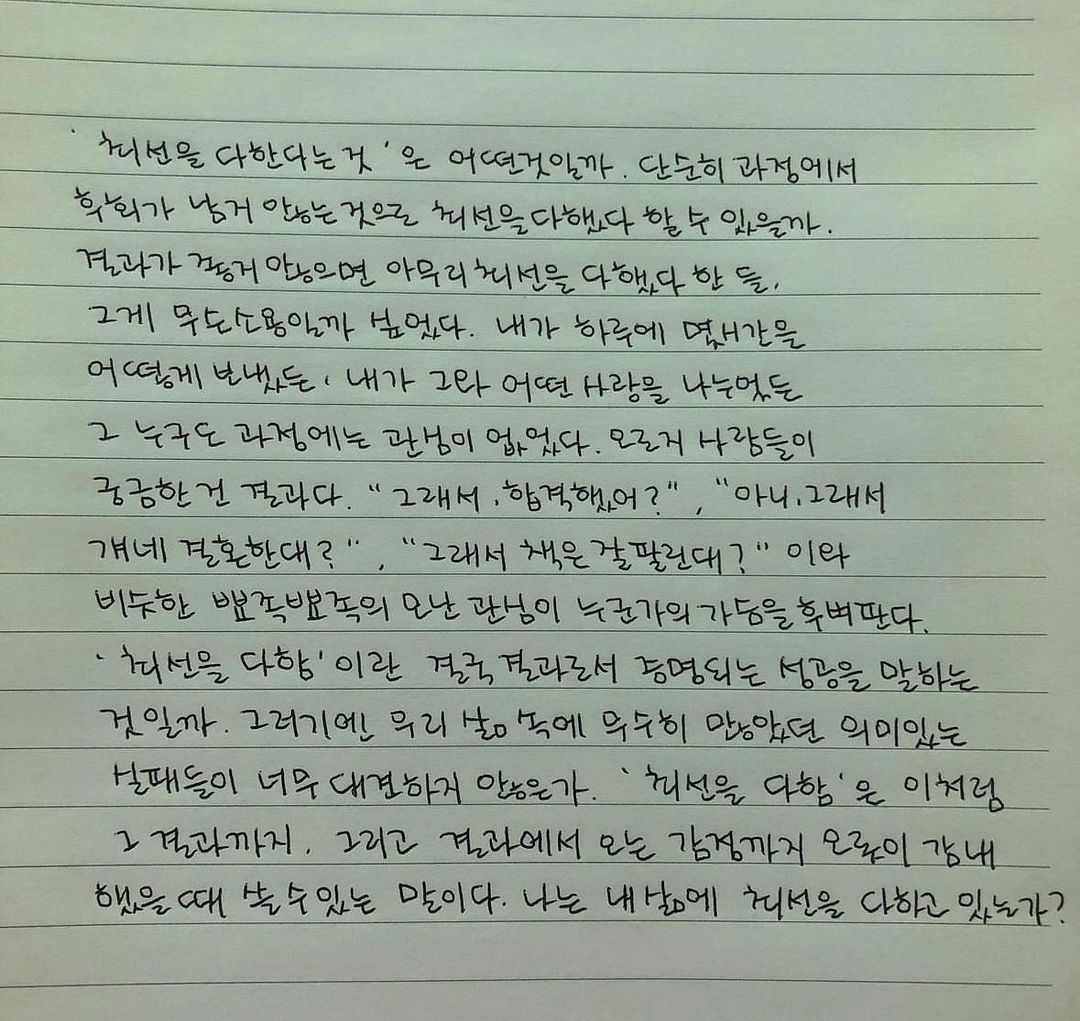 '최선을 다한다는 것'은 어떤것일까. 단순히 과정에서
후회가 남지 않는 것으로 최선을 다했다 할 수 있을까.
결과가 좋지 않으면 아무리 최선을 다했다 한 들,
그게 무슨소용일까 싶었다. 내가 하루에 몇시간을
어떻게 보냈든, 내가 그와 어떤 사랑을 나누었든
그 누구도 과정에는 관심이 없었다. 오로지 사람들이
궁금한 건 결과다. "그래서, 합격했어?", "아니, 그래서
걔네 결혼한대?", "그래서 책은 잘 팔린대?" 이와
비슷한 뾰족뾰족의 모난 관심이 누군가의 가슴을 후벼판다.
'최선을 다함'이란 결국 결과로서 증명되는 성공을 말하는
것일까. 그러기엔 우리 삶 속에 무수히 많았던 의미있는
실패들이 너무 대견하지 않은가. '최선을 다함'은 이처럼
그 결과까지. 그리고 결과에서 오는 감정까지 오롯이 감내
했을 때 쓸 수 있는 말이다. 나는 내 삶에 최선을 다하고 있는가?